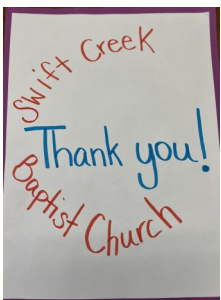 Swift Creek
Thank you!
Baptist Church